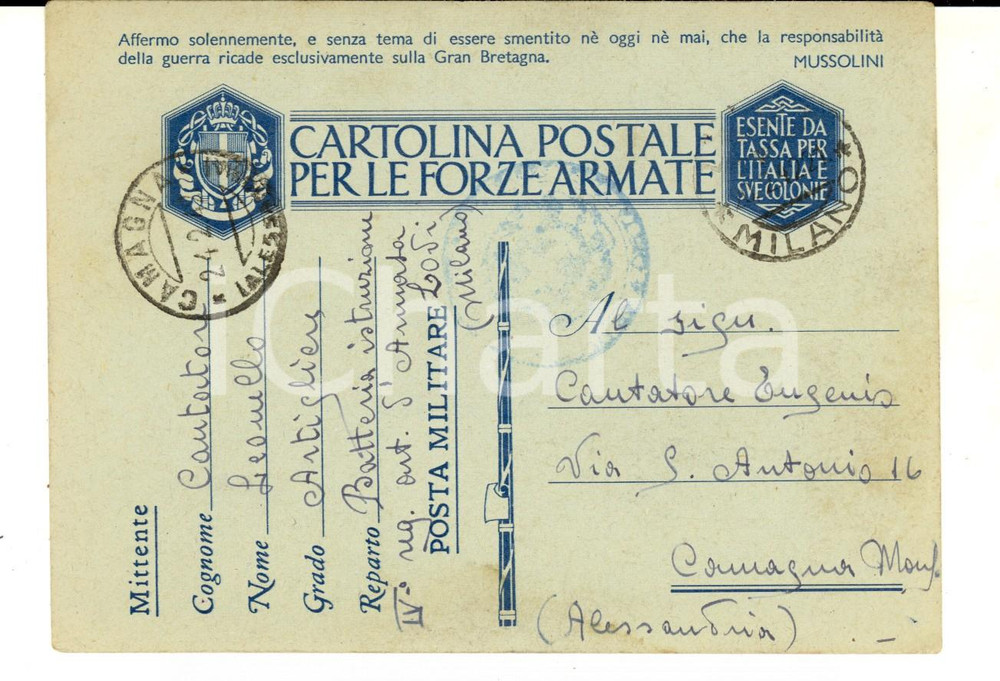 Affermo solennemente, e senza tema di essere smentito nè oggi nè mai, che la responsabilità
della guerra ricade esclusivamente sulla Gran Bretagna.
MUSSOLINI
CARTOLINA POSTALE
PER LE FORZE ARMATE
ESENTE DA
TASSA PER
L'ITALIA E
SVE COLONIE
CAMAGNA
MILANO
Mittente
Cognome Cantatore
Nome Leonello
Grado Artigliere
Reparto Batteria istruzione
IV° reg. art. d'Armata
POSTA MILITARE Lodi
(Milano)
Al sign.
Cantatore Eugenio
Via S. Antonio 16
Camagna Monf.
(Alessandria)
iCharta